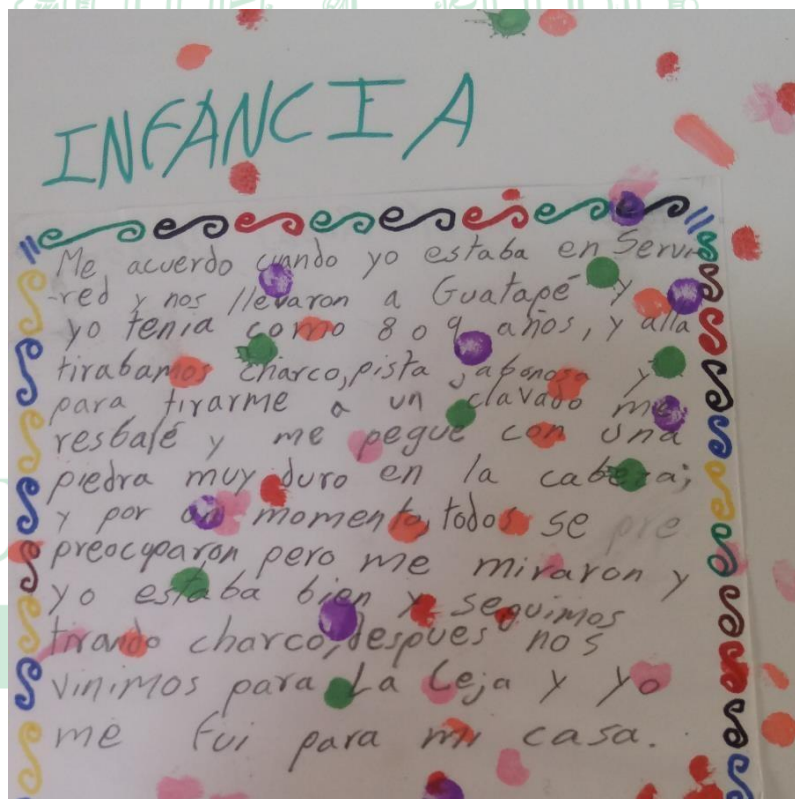 INFANCIA
Me acuerdo cuando yo estaba en Servi
-red y nos llevaron a Guatapé y
yo tenia como 8 o 9 años, y alla
tirabamos charco, pista jabonosa y
para tirarme a un clavado me
resbalé y me pegué con una
piedra muy duro en la cabeza;
y por un momento, todos se pre
preocuparon pero me miraron y
yo estaba bien y seguimos
tirando charco, despues nos
vinimos para La Ceja y yo
me fui para mi casa.